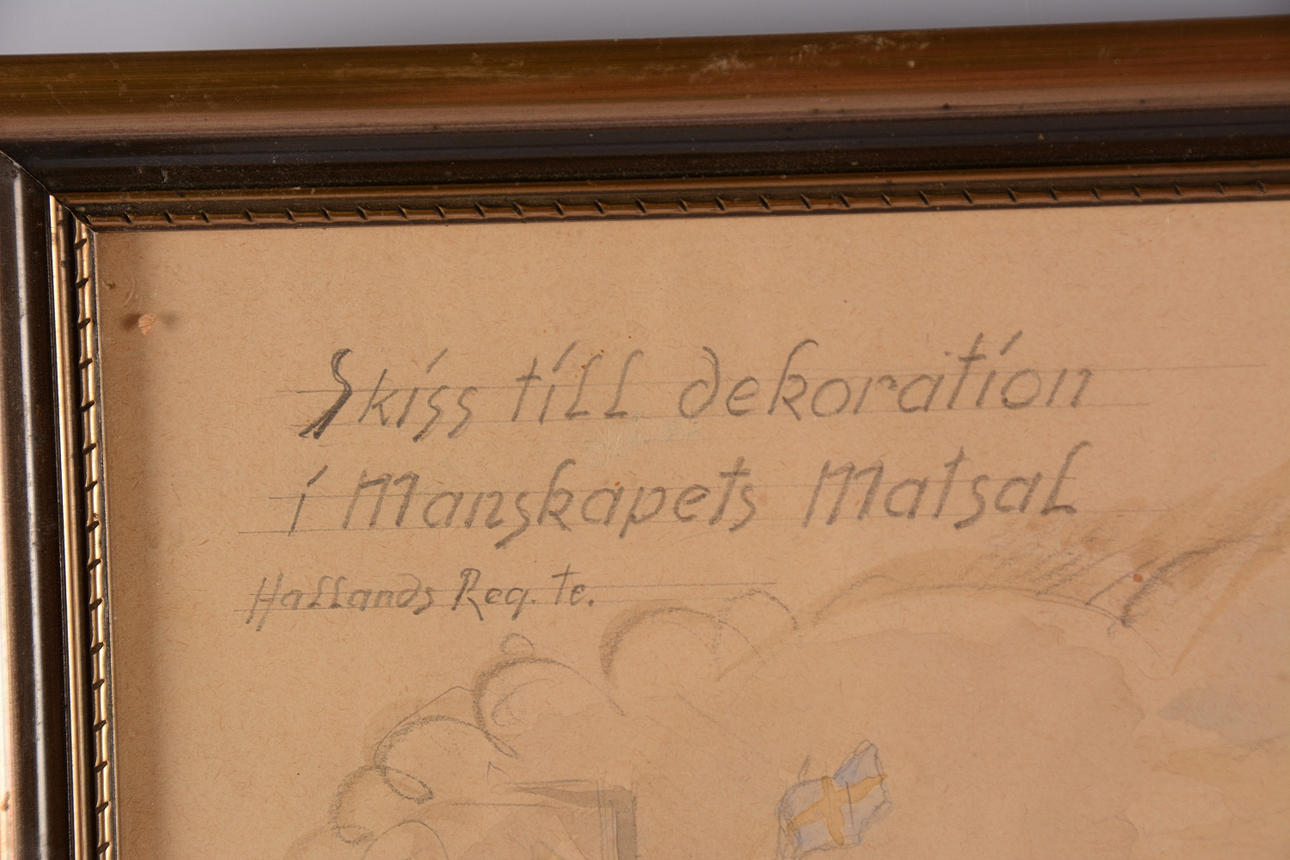 Skiss till dekoration
i Manskapets Matsal
Hallands Reg. te.